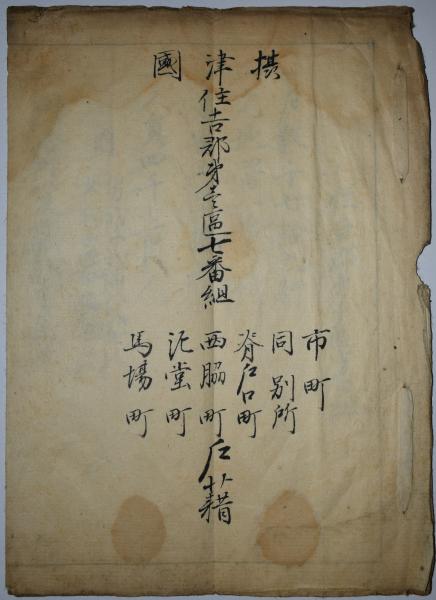 摂津國
住吉郡第壱區七番組
市町
同別所
脊戸口町
西脇町
泥堂町
馬場町
戸籍